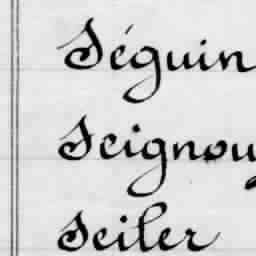 Séguin
Seignou
Seiler